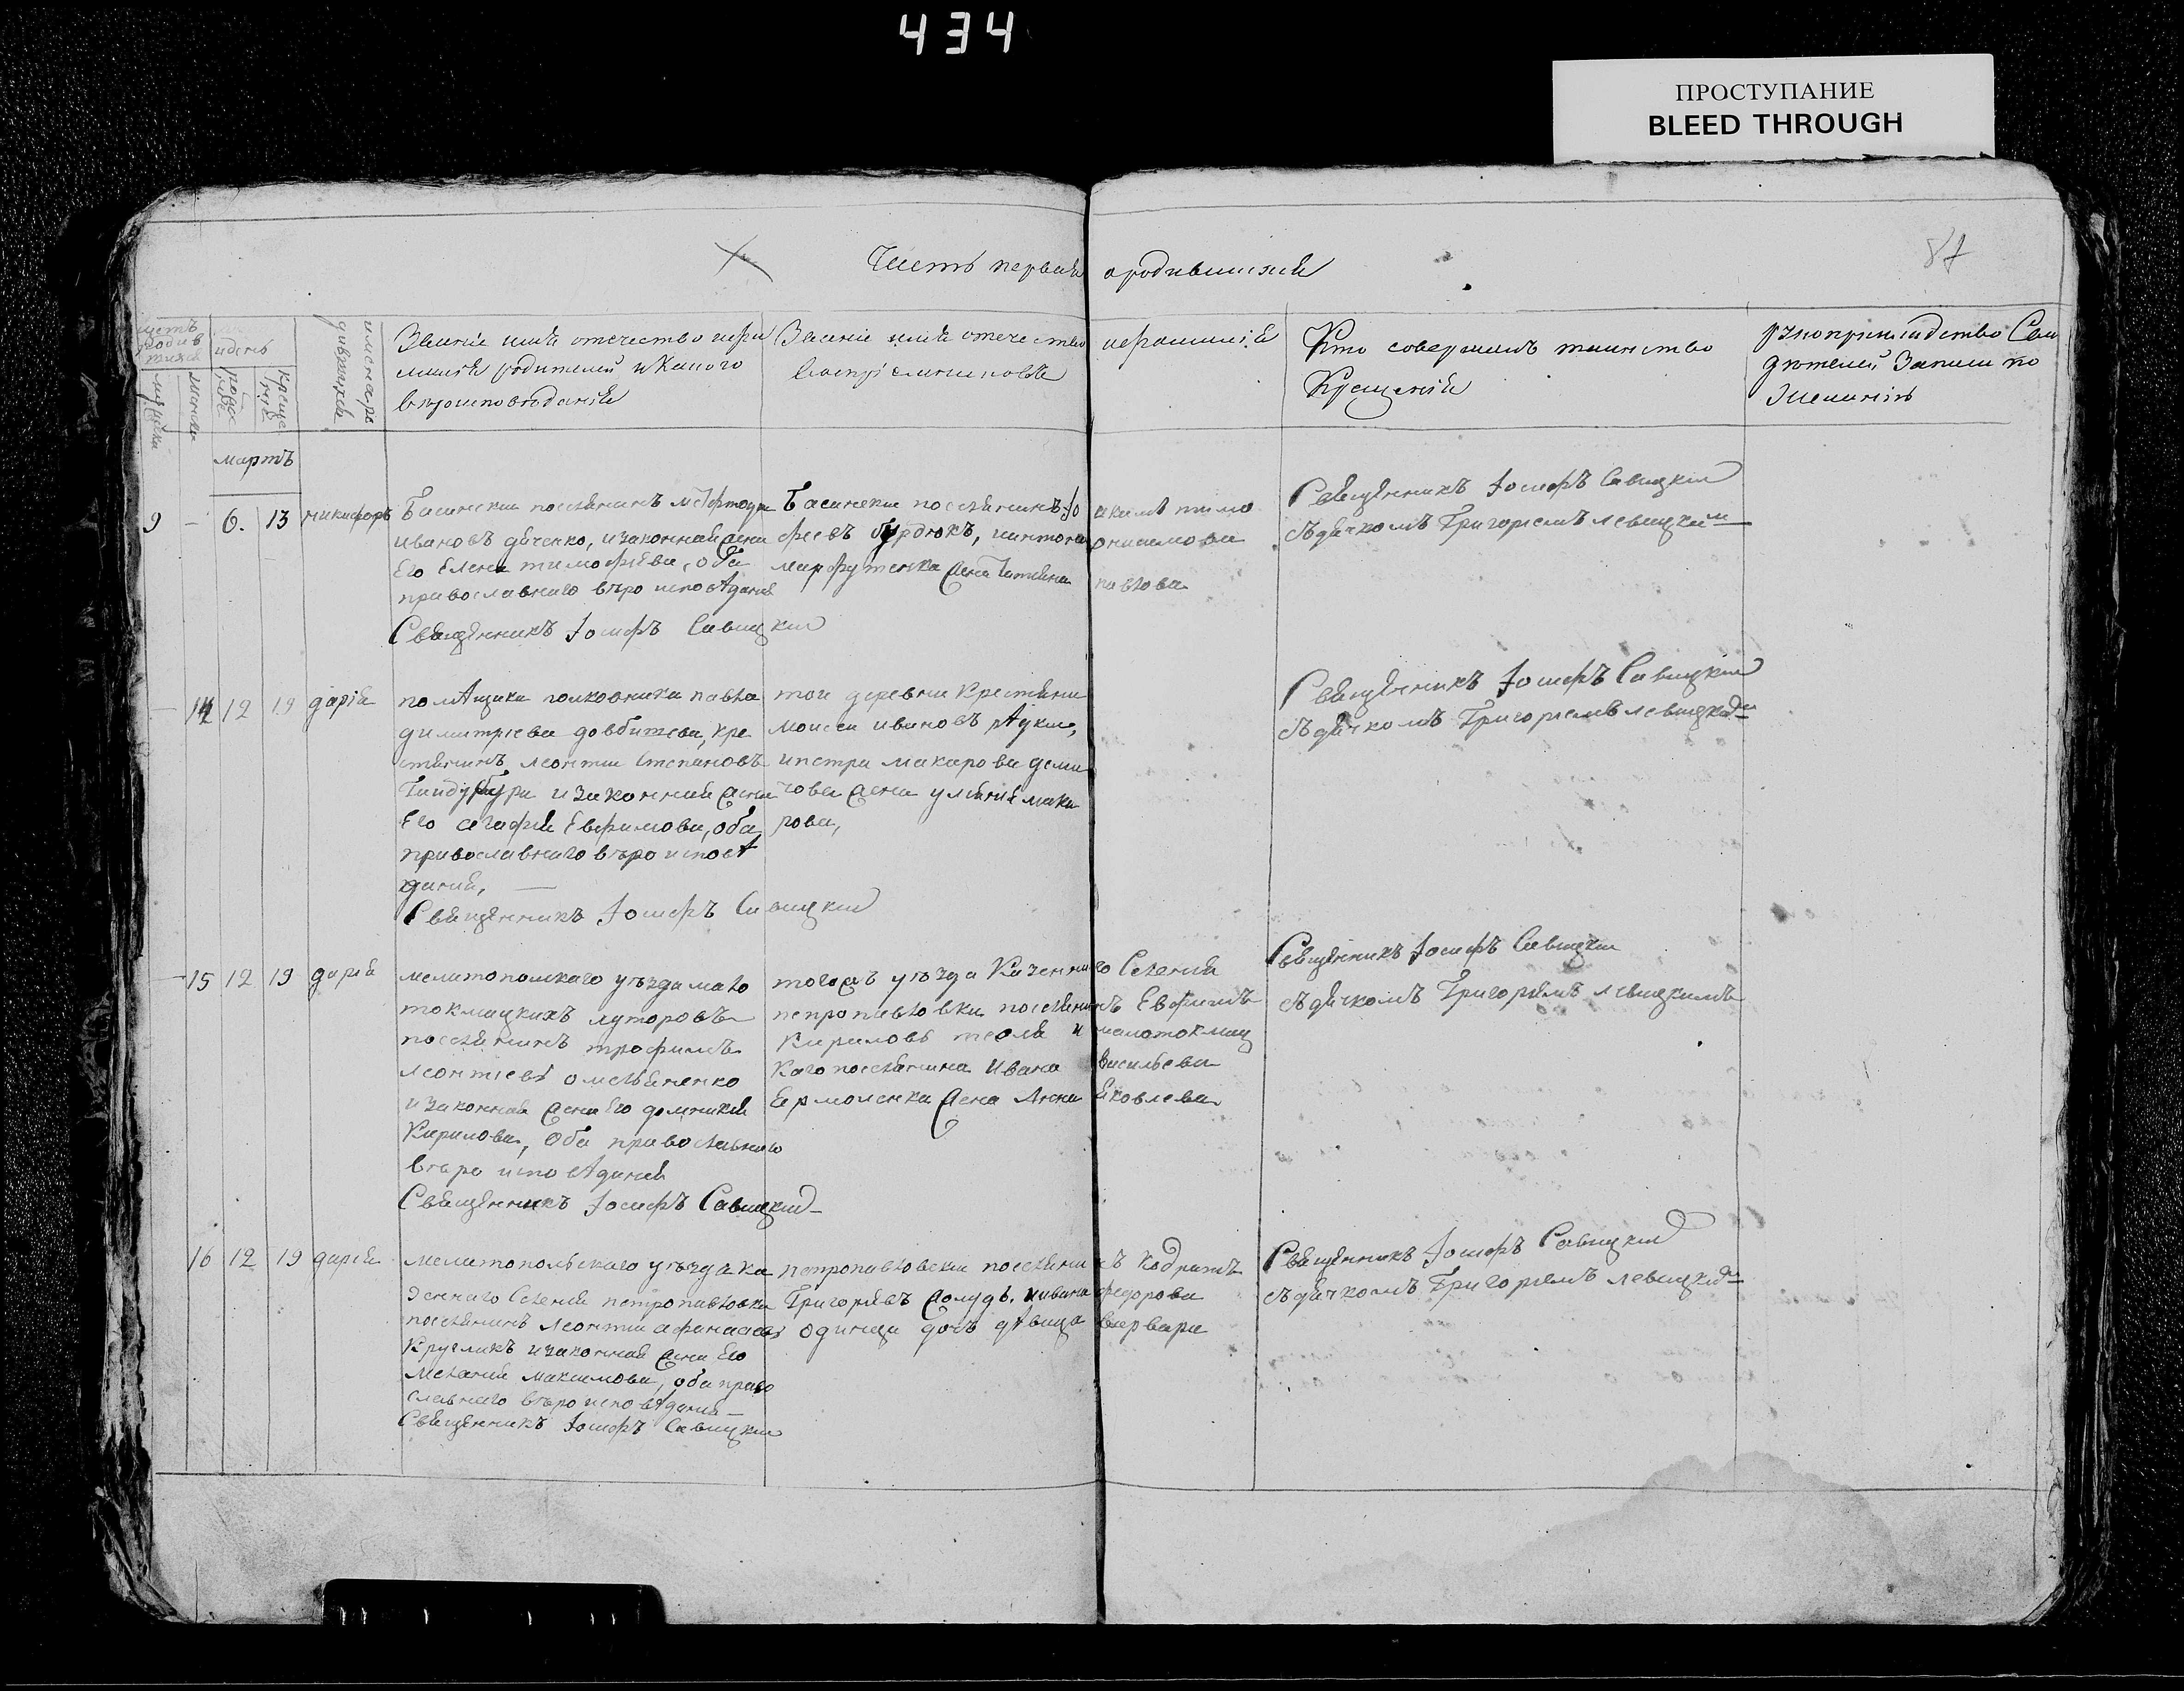 434
ПРОСТУПАНИЕ
BLEED THROUGH
87
Часть первая ородившихся
щетъ родив шихся
мужеска
женска
идень
рожде
креще нiя
имена ро дившихся
Званiе имя отечество ифа милiя родителей икакого вѣроисповѣданiя
Званiе имя отечество ифамилiя воспрiемниковъ
Кто совершалъ таинство Крещенiя
рукоприкладство Сви дѣтелей Записи по Желанiю
мартъ
9 - 6. 13 никифоръ
Басански поселянинъ
ивановъ дяченко, изаконная жена
Его Елена тимофѣева, оба
православнаго вѣро исповѣданiя
Священникъ Iосифъ Савицкiи
Басански поселянинъ Iо акимъ тимо
феевъ бурдюкъ, иантона онисимова
марфутенка жена татiяна павлова
Священникъ Iосифъ Савицкiи
съдячкомъ Григориемъ левицким
14 12 19 дарiя
помѣщика полковника павла
димитрiева довбишева, кре
стянинъ леонтiи Степановъ
изаконная жена
Его агафiя Евфимова, оба
православнаго вѣро исповѣ
данiя,
Священникъ Iосифъ Савицкiи
тои деревни Крестянин
моисеи ивановъ рѣдки,
ипетра макарова деми
чова жена улянiя мака
рова,
Священникъ Iосифъ Савицкiи
съдячкомъ Григориемъ левицким
15 12 19 дария
мелитополскаго уѣзда мало
токмацкихъ хуторовъ
поселянинъ трофимъ
леонтiевъ омеляненко
изаконная жена Его домникiя
Кирилова, Оба православнаго
вѣро исповѣданiя
Священникъ Iосифъ Савицкiи
тогожъ уѣзда Казеннаго Селения
петропавловки поселянинъ Евфимъ
Кириловъ тесля и малотокмац
Каго поселянина Ивана Васильева
Ермоленка жена Анна яковлева
Священникъ Iосифъ Савицкiи
съдячкомъ Григорiемъ левицкимъ
16 12 19 дария
мелитопольскаго уѣзда ка
зеннаго Селения петропавловки
поселянинъ леонтiи афанасевъ
Кругликъ изаконная жена Его
Меланiя максимова, оба право
славнаго вѣро исповѣданiя
Священникъ Iосифъ Савицкiи
петропавловски поселянинъ Кодратъ
Григорiевъ жолудь. иивана федорова
одинца дочь дѣвица варвара
Священникъ Iосифъ Савицкiи
съдячкомъ Григорiемъ левицким